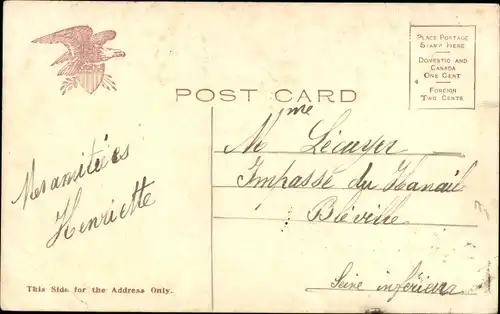 PLACE POSTAGE
STAMP HERE
DOMESTIC AND
CANADA
ONE CENT
FOREIGN
TWO CENTS
POST CARD
Mme Lécuyer
Impasse du Hanail
Bléville
Seine inférieure
Mes amitiées
Henriette
This Side for the Address Only.